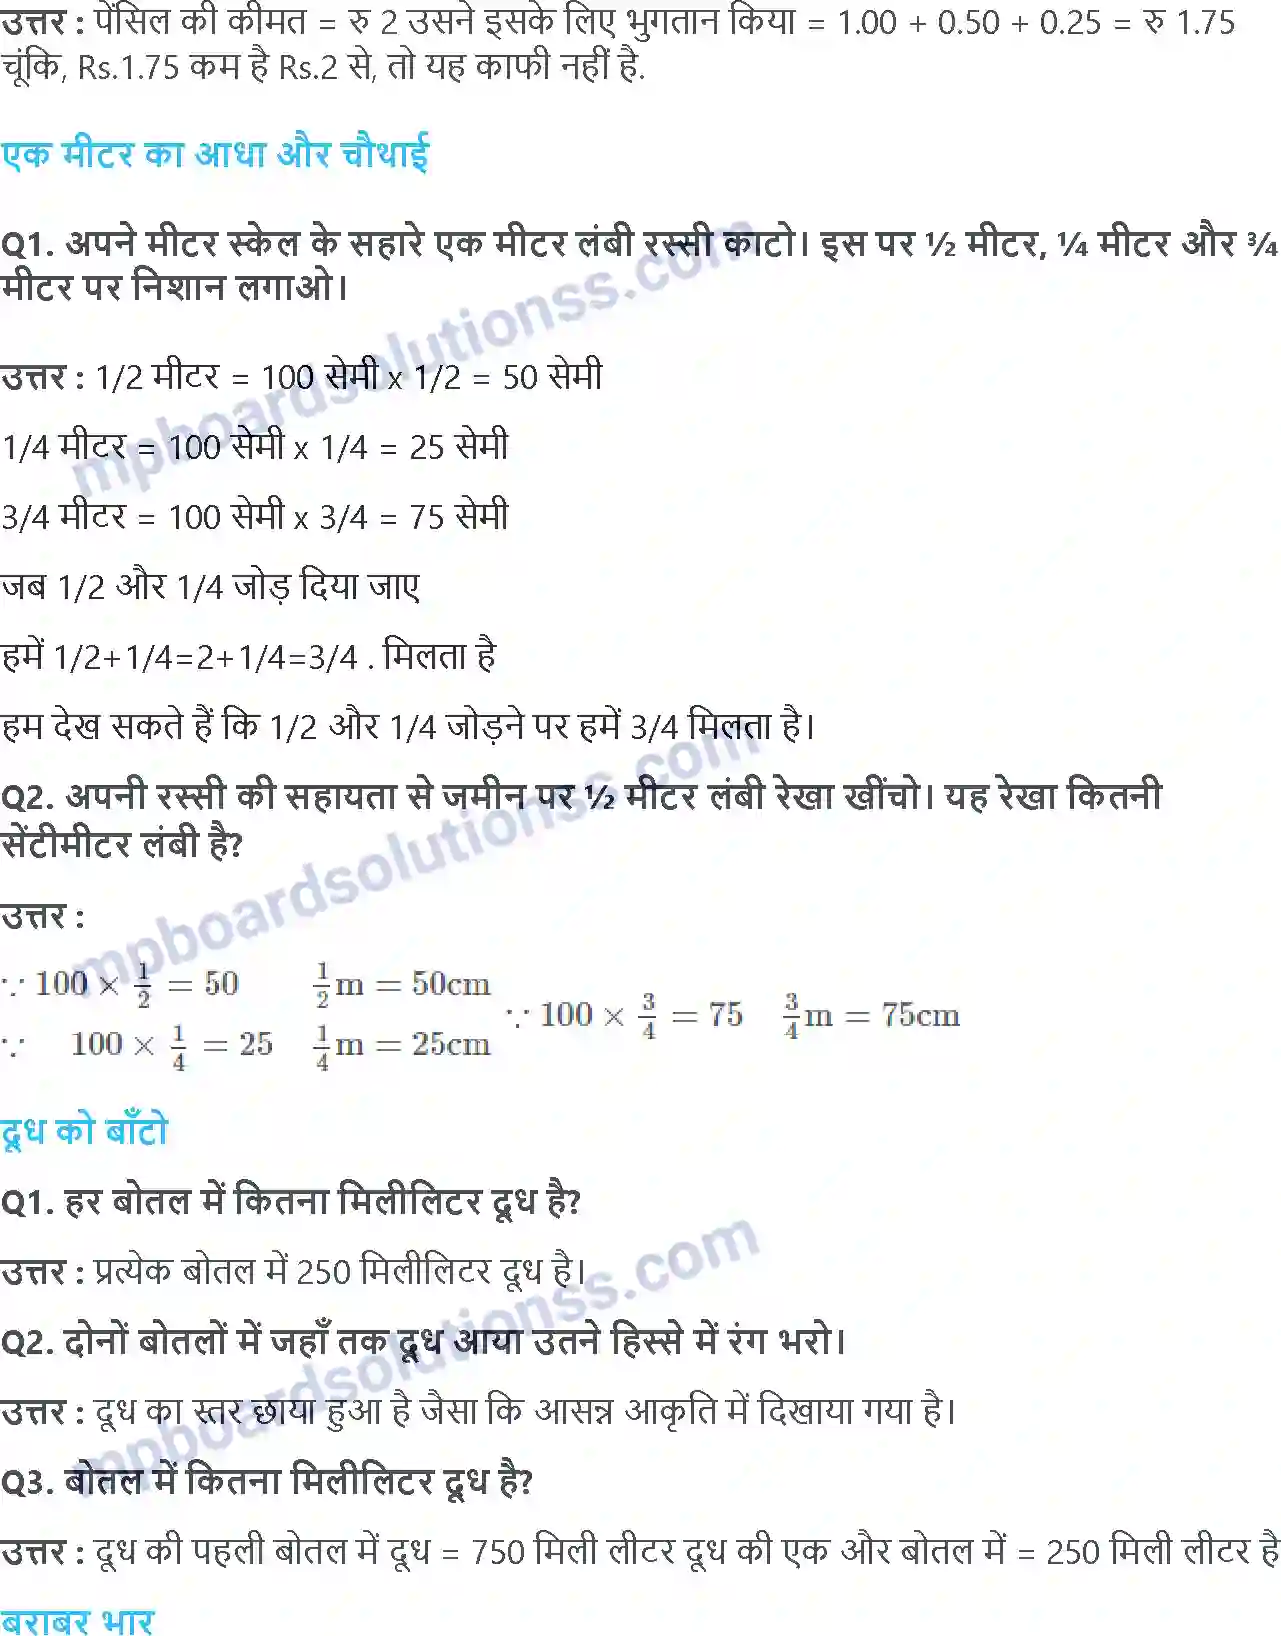 उत्तर : पेंसिल की कीमत = रु 2 उसने इसके लिए भुगतान किया = 1.00 + 0.50 + 0.25 = रु 1.75
चूंकि, Rs.1.75 कम है Rs.2 से, तो यह काफी नहीं है.
एक मीटर का आधा और चौथाई
Q1. अपने मीटर स्केल के सहारे एक मीटर लंबी रस्सी काटो। इस पर ½ मीटर, ¼ मीटर और ¾
मीटर पर निशान लगाओ।
उत्तर : 1/2 मीटर = 100 सेमी x 1/2 = 50 सेमी
1/4 मीटर = 100 सेमी x 1/4 = 25 सेमी
3/4 मीटर = 100 सेमी x 3/4 = 75 सेमी
जब 1/2 और 1/4 जोड़ दिया जाए
हमें 1/2+1/4=2+1/4=3/4 . मिलता है
हम देख सकते हैं कि 1/2 और 1/4 जोड़ने पर हमें 3/4 मिलता है।
Q2. अपनी रस्सी की सहायता से जमीन पर ½ मीटर लंबी रेखा खींचो। यह रेखा कितनी
सेंटीमीटर लंबी है?
उत्तर :
∵ 100 × 1/2 = 50 1/2 m = 50cm
∵ 100 × 1/4 = 25 1/4 m = 25cm
∵ 100 × 3/4 = 75 3/4 m = 75cm
दूध को बाँटो
Q1. हर बोतल में कितना मिलीलिटर दूध है?
उत्तर : प्रत्येक बोतल में 250 मिलीलिटर दूध है।
Q2. दोनों बोतलों में जहाँ तक दूध आया उतने हिस्से में रंग भरो।
उत्तर : दूध का स्तर छाया हुआ है जैसा कि आसन्न आकृति में दिखाया गया है।
Q3. बोतल में कितना मिलीलिटर दूध है?
उत्तर : दूध की पहली बोतल में दूध = 750 मिली लीटर दूध की एक और बोतल में = 250 मिली लीटर है
बराबर भार
mpboardsolutionss.com
mpboardsolutionss.com
mpboardsolutionss.com